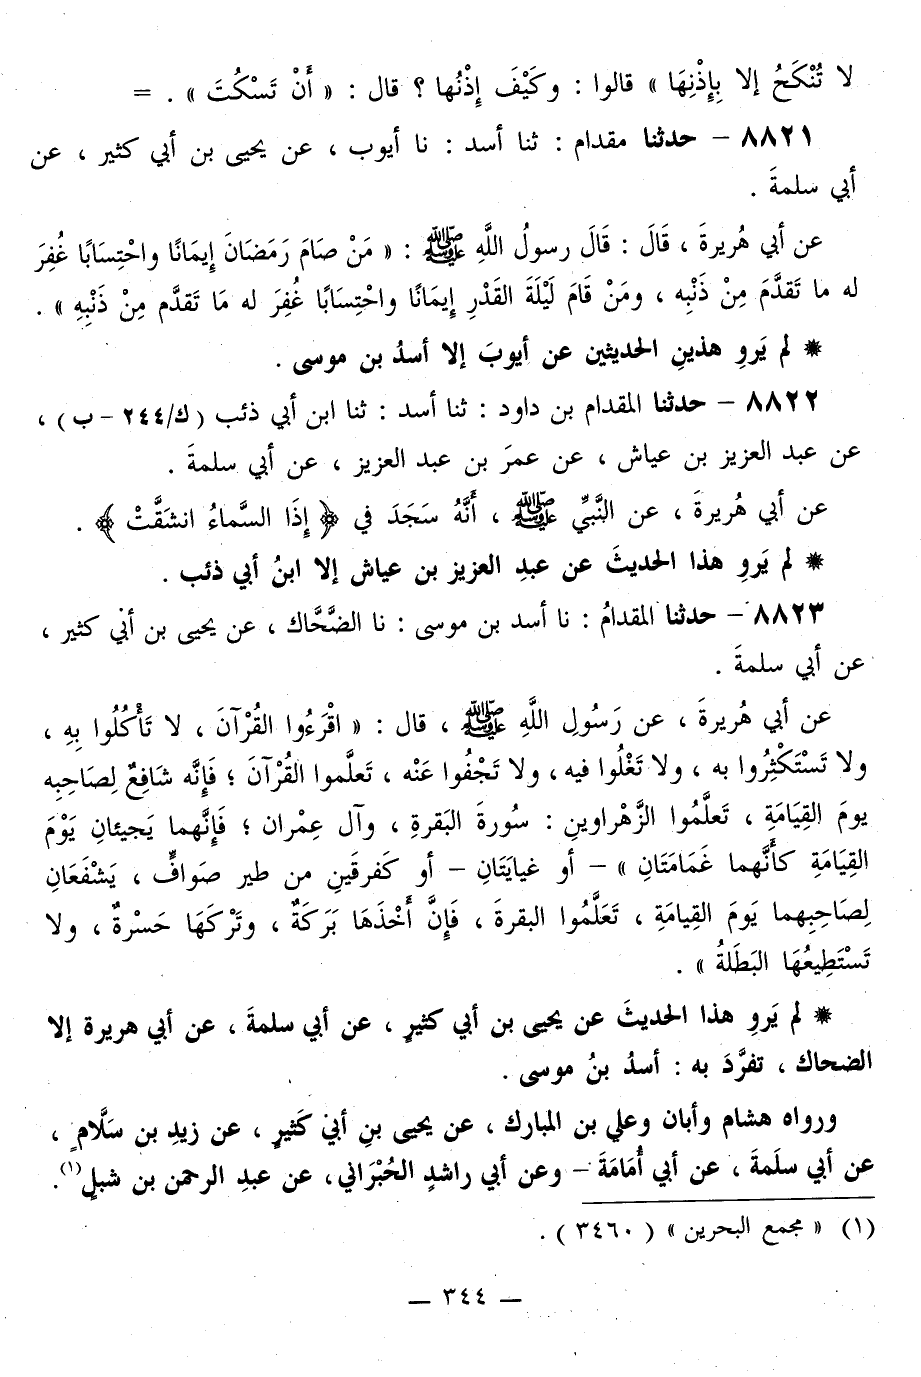 لا تُنْكَحُ إلا بِإِذْنِهَا » قالوا : وكَيْفَ إِذْنُها ؟ قال : « أَنْ تَسْكُتَ » . =
٨٨٢١ – حدثنا مقدام : ثنا أسد : نا أيوب ، عن يحيى بن أبي كثير ، عن
أبي سلمةَ .
عن أبي هُريرةَ ، قَالَ : قَالَ رسولُ اللَّهِ ﷺ : « مَنْ صامَ رَمَضَانَ إِيمَانًا واحْتِسَابًا غُفِرَ
له ما تَقدَّمَ مِنْ ذَنْبِه ، ومَنْ قَامَ لَيْلَةَ القَدْرِ إِيمَانًا واحْتِسَابًا غُفِرَ له مَا تَقدَّم مِنْ ذَنْبِهِ » .
* لم يَروِ هذينِ الحديثين عن أيوبَ إلا أسدُ بن موسى .
٨٨٢٢ – حدثنا المقدام بن داود : ثنا أسد : ثنا ابن أبي ذئب ( ك/٢٤٤ – ب ) ،
عن عبد العزيز بن عياش ، عن عمرَ بن عبد العزيز ، عن أبي سلمةَ .
عن أبي هُريرةَ ، عن النَّبيِّ ﷺ ، أَنَّهُ سَجَدَ في ﴿ إِذَا السَّماءُ انشَقَّتْ ﴾ .
* لم يَروِ هذا الحديثَ عن عبدِ العزيز بن عياش إلا ابنُ أبي ذئب .
٨٨٢٣ – حدثنا المقدامُ : نا أسد بن موسى : نا الضَّحَّاك ، عن يحيى بن أبي كثير ،
عن أبي سلمةَ .
عن أبي هُريرةَ ، عن رَسُولِ اللَّهِ ﷺ ، قال : « اقْرَءُوا القُرْآنَ ، لا تَأْكُلُوا بِهِ ،
ولا تَسْتَكْثِرُوا به ، ولا تَغْلُوا فيه، ولا تَجْفُوا عَنْه ، تَعلَّموا القُرْآنَ ؛ فَإِنَّه شَافِعٌ لِصَاحِبِه
يومَ القِيَامَةِ ، تَعلَّمُوا الزَّهْراوينِ : سُورةَ البَقرةِ ، وآل عِمْران ؛ فَإِنَّهما يَجيئانِ يَوْمَ
القِيَامَةِ كأَنَّهما غَمَامَتَانِ » – أو غيايَتَانِ – أو كَفرقَينِ من طير صَوافٍّ ، يَشْفَعَانِ
لِصَاحِبِهما يَومَ القِيامَةِ ، تَعَلَّمُوا البقرةَ ، فَإِنَّ أَخْذَهَا بَرَكَةٌ ، وتَرْكَهَا حَسْرةٌ ، ولا
تَسْتَطِيعُهَا البَطَلةُ » .
* لم يَروِ هذا الحديثَ عن يحيى بن أبي كثيرٍ ، عن أبي سلمةَ ، عن أبي هريرة إلا
الضحاك ، تفرَّدَ به : أسدُ بنُ موسى .
ورواه هشام وأبان وعلي بن المبارك ، عن يحيى بنِ أبي كَثيرٍ ، عن زيدِ بن سَلَّامٍ ،
عن أبي سلَمةَ ، عن أبي أُمَامَةَ – وعن أبي راشدٍ الحُبْرَاني، عن عبدِ الرحمن بن شبلٍ(١).
(١) « مجمع البحرين » ( ٣٤٦٠ ) .
— ٣٤٤ —